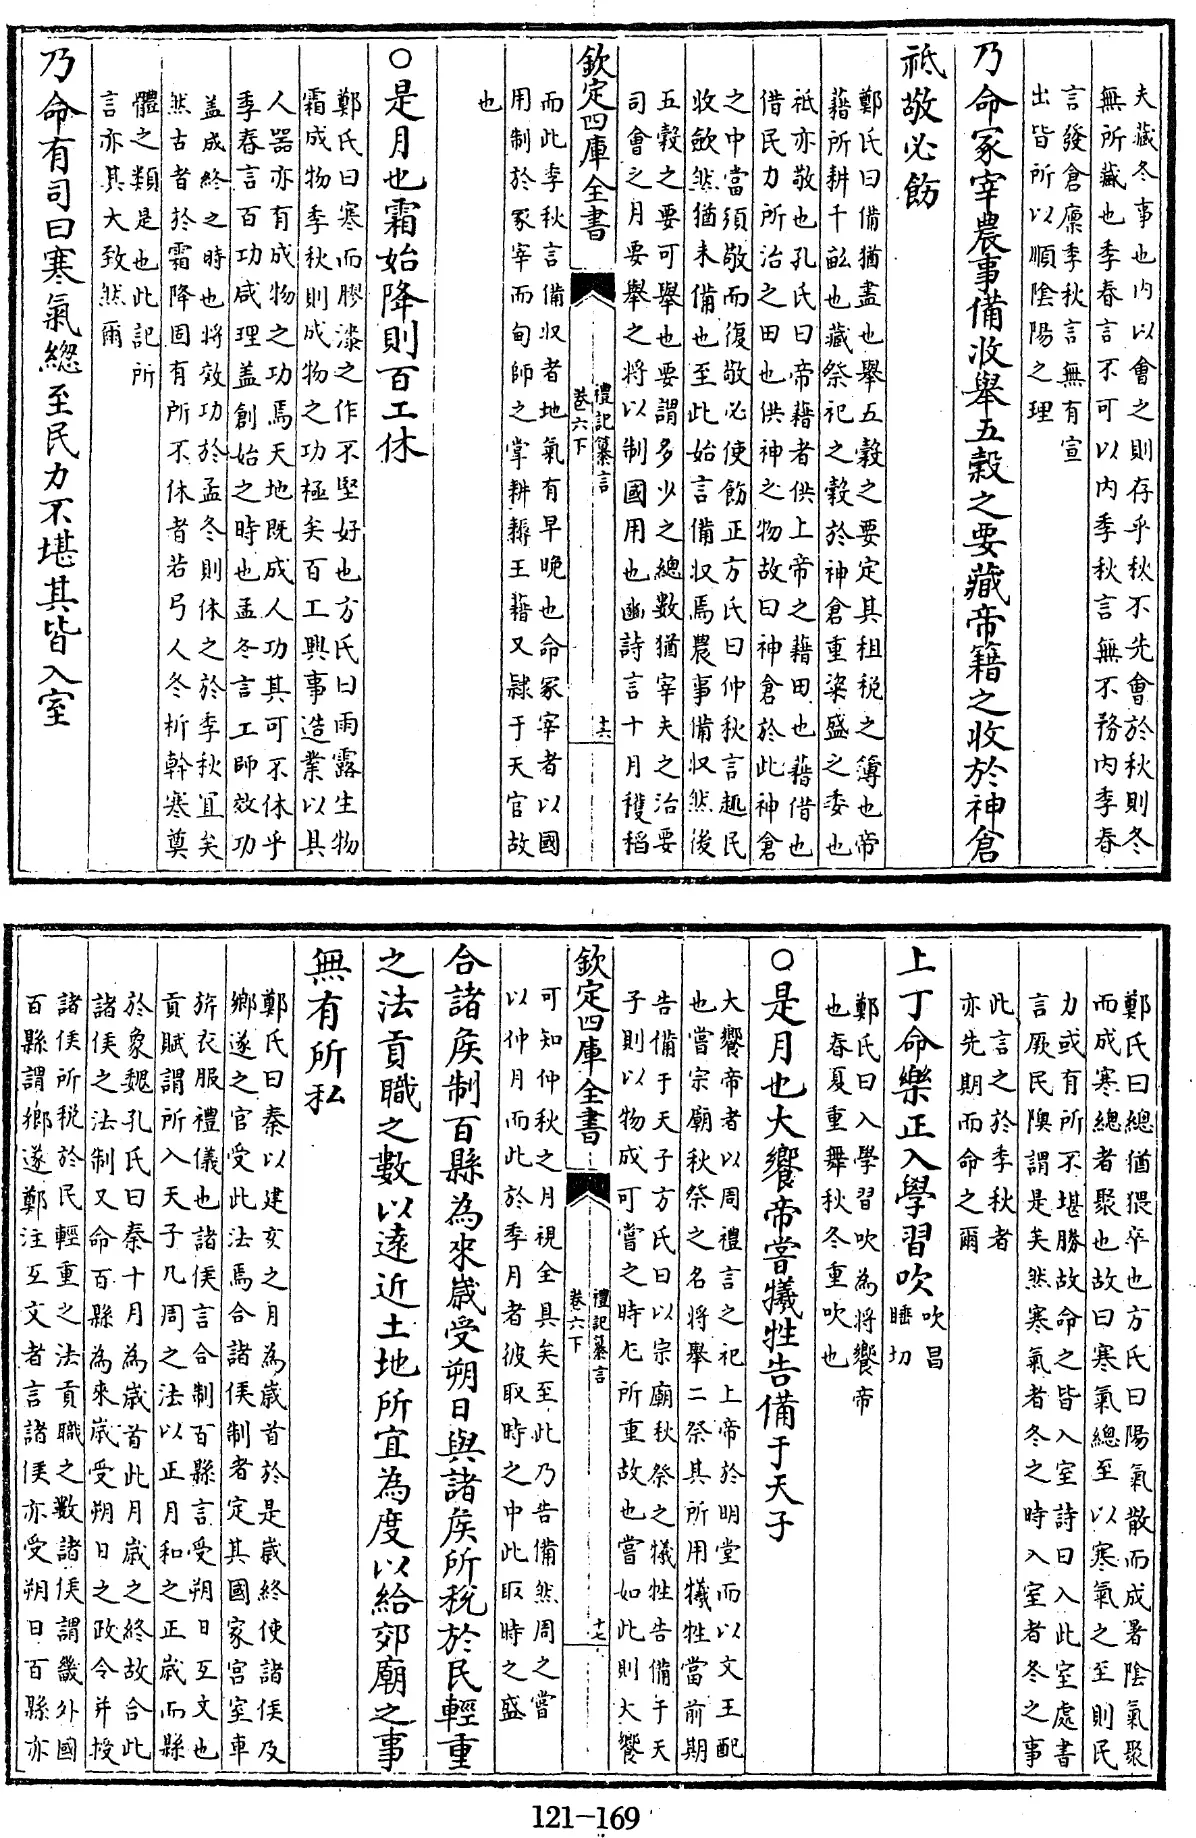 夫藏冬事也内以會之則存乎秋不先會於秋則冬
無所藏也季春言不可以内季秋言無不務内季春
言發倉廩季秋言無有宣
出皆所以順陰陽之理
乃命冢宰農事備收舉五穀之要藏帝籍之收於神倉
祗敬必飭
鄭氏曰備猶盡也舉五穀之要定其租稅之簿也帝
藉所耕千畝也藏祭祀之穀於神倉重粢盛之委也
祗亦敬也孔氏曰帝藉者供上帝之藉田也藉借也
借民力所治之田也供神之物故曰神倉於此神倉
之中當須敬而復敬必使飭正方氏曰仲秋言趣民
收斂然猶未備也至此始言備收焉農事備收然後
五穀之要可舉也要謂多少之總數猶宰夫之治要
司會之月要舉之將以制國用也豳詩言十月穫稻
欽定四庫全書
禮記纂言
卷六下
十六
而此季秋言備收者地氣有早晚也命冢宰者以國
用制於冢宰而甸師之掌耕耨王藉又隸于天官故
也
○是月也霜始降則百工休
鄭氏曰寒而膠漆之作不堅好也方氏曰雨露生物
霜成物季秋則成物之功極矣百工興事造業以具
人器亦有成物之功焉天地既成人功其可不休乎
季春言百功咸理蓋創始之時也孟冬言工師效功
蓋成終之時也將效功於孟冬則休之於季秋宜矣
然古者於霜降固有所不休者若弓人冬析幹寒奠
體之類是也此記所
言亦其大致然爾
乃命有司曰寒氣總至民力不堪其皆入室
鄭氏曰總猶猥卒也方氏曰陽氣散而成暑陰氣聚
而成寒總者聚也故曰寒氣總至以寒氣之至則民
力或有所不堪勝故命之皆入室詩曰入此室處書
言厥民隩謂是矣然寒氣者冬之時入室者冬之事
此言之於季秋者
亦先期而命之爾
上丁命樂正入學習吹吹昌
睡切
鄭氏曰入學習吹為將饗帝
也春夏重舞秋冬重吹也
○是月也大饗帝嘗犧牲告備于天子
大饗帝者以周禮言之祀上帝於明堂而以文王配
也嘗宗廟秋祭之名將舉二祭其所用犧牲當前期
告備于天子方氏曰以宗廟秋祭之犧牲告備于天
子則以物成可嘗之時尤所重故也嘗如此則大饗
欽定四庫全書
禮記纂言
卷六下
十七
可知仲秋之月視全具矣至此乃告備然周之嘗
以仲月而此於季月者彼取時之中此取時之盛
合諸侯制百縣為來歲受朔日與諸侯所稅於民輕重
之法貢職之數以遠近土地所宜為度以給郊廟之事
無有所私
鄭氏曰秦以建亥之月為歲首於是歲終使諸侯及
鄉遂之官受此法焉合諸侯制者定其國家宮室車
旂衣服禮儀也諸侯言合制百縣言受朔日互文也
貢賦謂所入天子凡周之法以正月和之正歲而縣
於象魏孔氏曰秦十月為歲首此月歲之終故合此
諸侯之法制又命百縣為來歲受朔日之政令并授
諸侯所稅於民輕重之法貢職之數諸侯謂畿外國
百縣謂鄉遂鄭注互文者言諸侯亦受朔日百縣亦
121-169